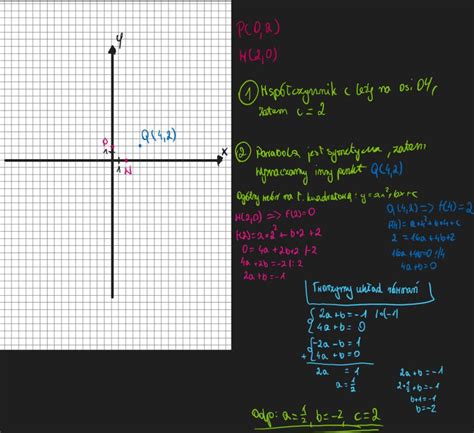 y
Q(4,2)
P
1
x
1 W
P(0,2)
W(2,0)
① Współczynnik c leży na osi OY,
zatem c=2
② Parabola jest symetryczna, zatem
wyznaczamy inny punkt Q(4,2)
Ogólny wzór na f. kwadratową: y=ax²+bx+c
W(2,0) => f(2)=0
f(2)=a·2²+b·2+2
0=4a+2b+2
4a+2b=-2 |:2
2a+b=-1
Q(4,2) => f(4)=2
f(4)=a·4²+b·4+c
2=16a+4b+2
16a+4b=0 |:4
4a+b=0
Tworzymy układ równań
{2a+b=-1 |·(-1)
{4a+b=0
{-2a-b=1
+{4a+b=0
2a =1
a=1/2
2a+b=-1
2·1/2+b=-1
b+1=-1
b=-2
Odp: a=1/2, b=-2, c=2